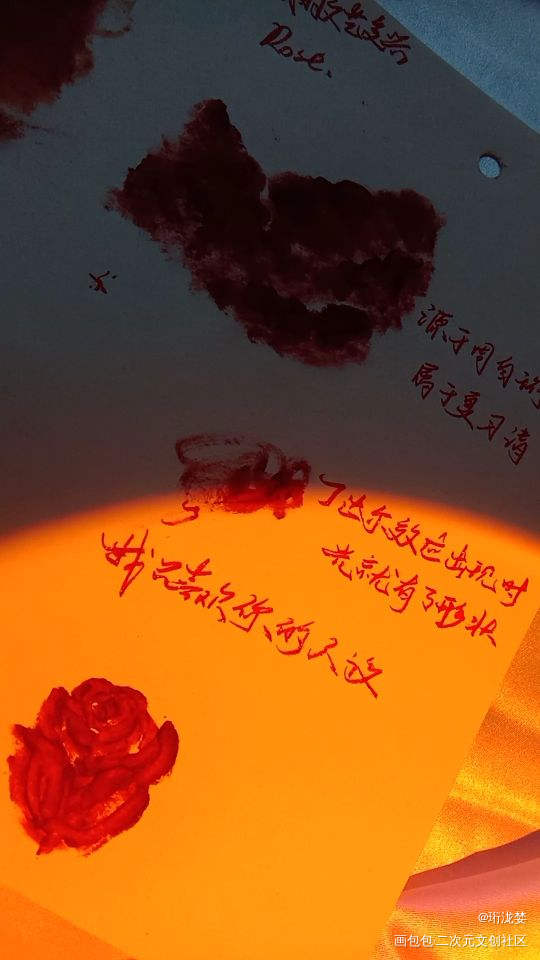 Rose.
源于周自珩
属于夏习清
丁达尔效应出现时
光就有了形状
我只喜欢你的人设
@珩泷婪
画包包二次元文创社区